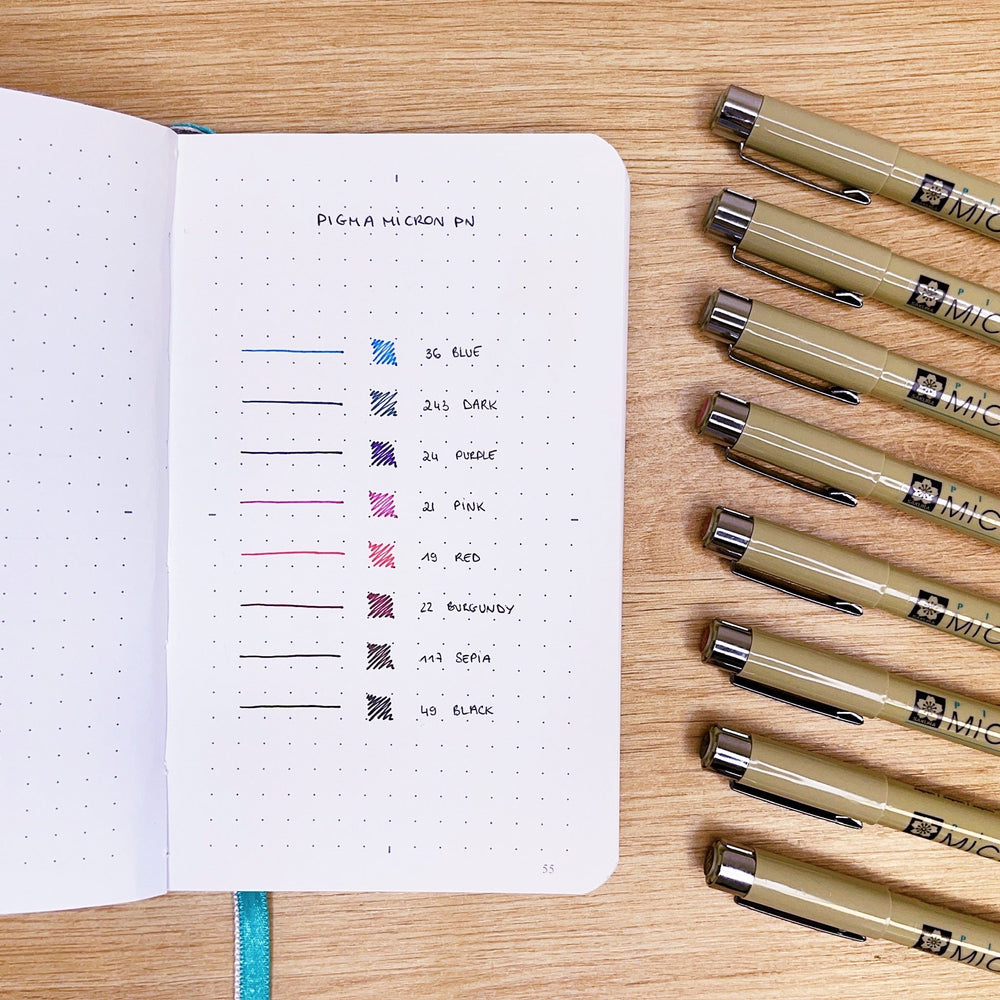 PIGMA MICRON PN
36 BLUE
243 DARK
24 PURPLE
21 PINK
19 RED
22 BURGUNDY
117 SEPIA
49 BLACK
55
PI
MIC
PI
MIC
PI
MIC
PI
MIC
PI
MIC
PI
MIC
MIC
PI
MIC